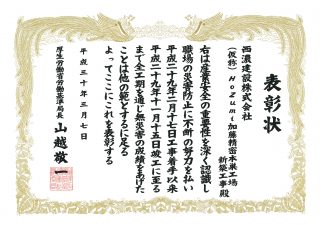 表彰状
西濃建設株式会社
(仮称)HoZumi加藤精密本巣工場
新築工事殿
右は産業安全の重要性を深く認識し
職場の災害防止に不断の努力を払い
平成二十九年二月十七日工事着手以来
平成二十九年十一月十五日竣工に至る
まで全工期を通じ無災害の成績をあげた
ことは他の範とするに足る
よってここにこれを表彰する
平成三十年三月七日
厚生労働省労働基準局長
山越敬一